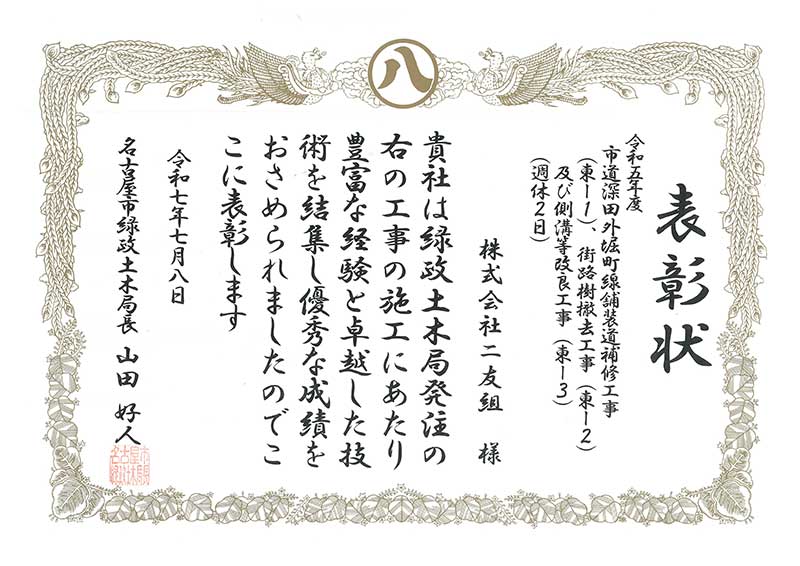 八
表彰状
令和五年度
市道深田外堀町線舗装道補修工事
(東ー1)、街路樹撤去工事(東ー2)
及び側溝等改良工事(東ー3)
(週休2日)
株式会社二友組 様
貴社は緑政土木局発注の
右の工事の施工にあたり
豊富な経験と卓越した技
術を結集し優秀な成績を
おさめられましたのでこ
こに表彰します
令和七年七月八日
名古屋市緑政土木局長 山田 好人